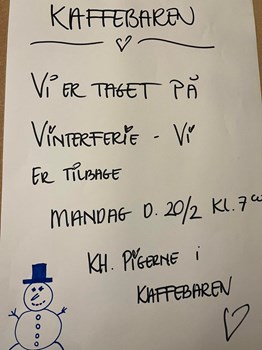 KAFFEBAREN
Vi ER TAGET PÅ
VINTERFERIE - Vi
ER TILBAGE
MANDAG D. 20/2 KL. 7⁰⁰
KH. PIGERNE i
KAFFEBAREN